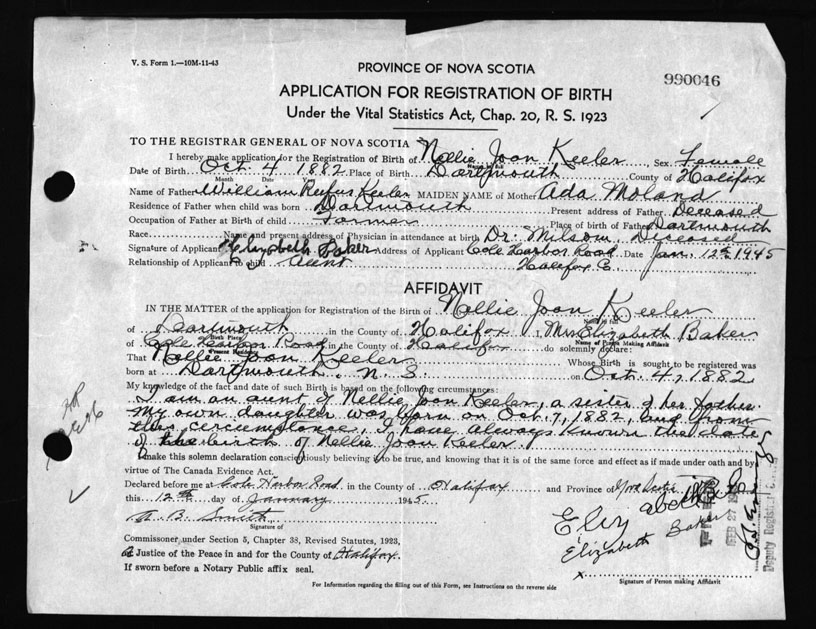 V. S. Form 1.—10M-11-43
PROVINCE OF NOVA SCOTIA
990046
APPLICATION FOR REGISTRATION OF BIRTH
Under the Vital Statistics Act, Chap. 20, R. S. 1923
TO THE REGISTRAR GENERAL OF NOVA SCOTIA
I hereby make application for the Registration of Birth of Nellie Joan Keeler, Sex Female
Date of Birth Oct 4 1882 Place of Birth Dartmouth County of Halifax
Month Day Year
Name of Father William Rufus Keeler MAIDEN NAME of Mother Ada Moland
Residence of Father when child was born Dartmouth Present address of Father Deceased
Occupation of Father at Birth of child Farmer Place of Birth of Father Dartmouth
Race Name and present address of Physician in attendance at birth Dr. Milsom, Deceased
Signature of Applicant Elizabeth Baker Address of Applicant Cole Harbor Road Date Jan. 12th 1945
Relationship of Applicant to child Aunt Halifax C.
AFFIDAVIT
IN THE MATTER of the application for Registration of the Birth of Nellie Joan Keeler
of Dartmouth in the County of Halifax I, Mrs Elizabeth Baker
Birth Place Name of Person Making Affidavit
of Cole Harbor Road in the County of Halifax do solemnly declare:
Present Residence
That Nellie Joan Keeler Whose Birth is sought to be registered was
born at Dartmouth. N. S. on Oct. 4, 1882
My knowledge of the fact and date of such Birth is based on the following circumstances:
I am an aunt of Nellie Joan Keeler, a sister of her father.
My own daughter was born on Oct. 7, 1882, and from
this circumstance, I have always known the date
of the birth of Nellie Joan Keeler.
I make this solemn declaration conscientiously believing it to be true, and knowing that it is of the same force and effect as if made under oath and by
virtue of The Canada Evidence Act.
Declared before me at Cole Harbor Road in the County of Halifax and Province of Nova Scotia
this 12th day of January 1945
A. B. Smith
Signature of
Elizabeth
Elizabeth Baker
FEB 27
Deputy Registrar
Commissioner under Section 5, Chapter 38, Revised Statutes, 1923,
a Justice of the Peace in and for the County of Halifax.
If sworn before a Notary Public affix seal.
x
Signature of Person making Affidavit
For Information regarding the filling out of this Form, see Instructions on the reverse side